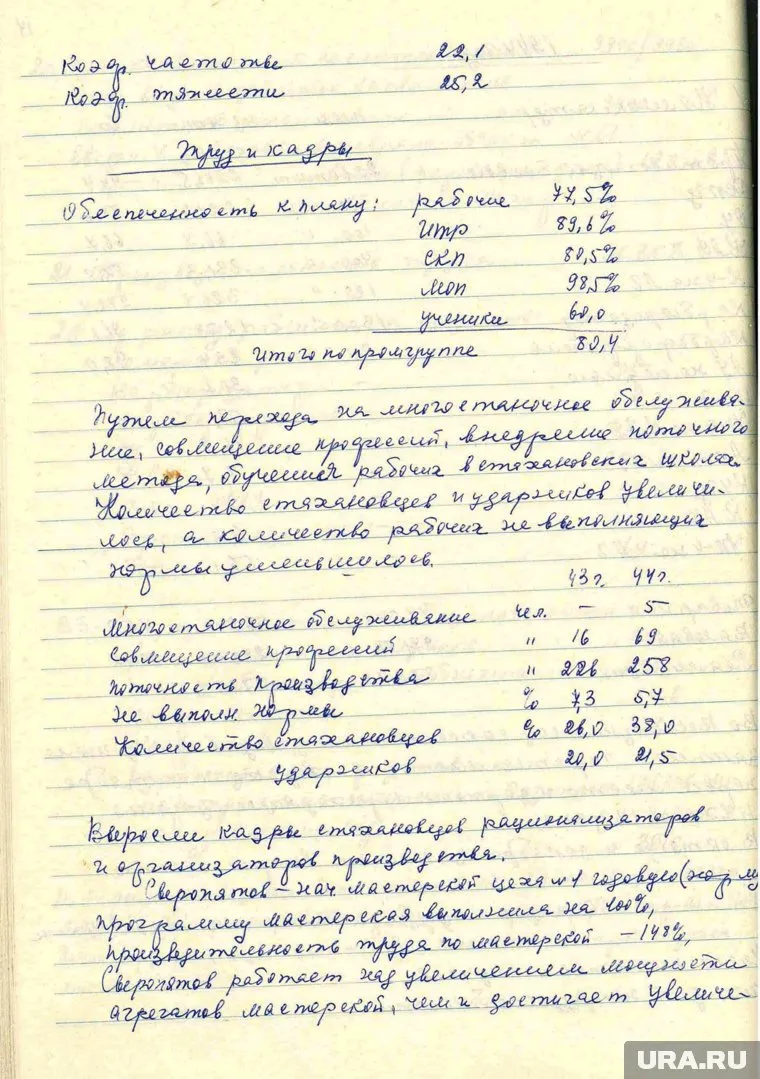 Коэф. частоты 22,1
Коэф. тяжести 25,2
Труд и кадры
Обеспеченность к плану: рабочие 77,5%
ИТР 89,6%
СКП 80,5%
МОП 98,5%
ученики 60,0
Итого по промгруппе 80,4
Путем перехода на многостаночное обслужива-
ние, совмещение профессий, внедрение поточного
метода, обучения рабочих в стахановских школах
Количество стахановцев и ударников увеличи-
лось, а количество рабочих не выполняющих
нормы уменьшилось.
43г. 44г.
Многостаночное обслуживание чел. – 5
совмещение профессий " 16 69
поточность производства " 226 258
не выполн. нормы % 7,3 5,7
Количество стахановцев % 26,0 38,0
ударников 20,0 21,5
Выросли кадры стахановцев рационализаторов
и организаторов производства.
Сверопятов – нач мастерской цеха №1 годовую (норму
программу мастерская выполнила на 100%,
производительность труда по мастерской – 148%,
Сверопятов работает над увеличением мощности
агрегатов мастерской, чем и достигает увеличе-
URA.RU